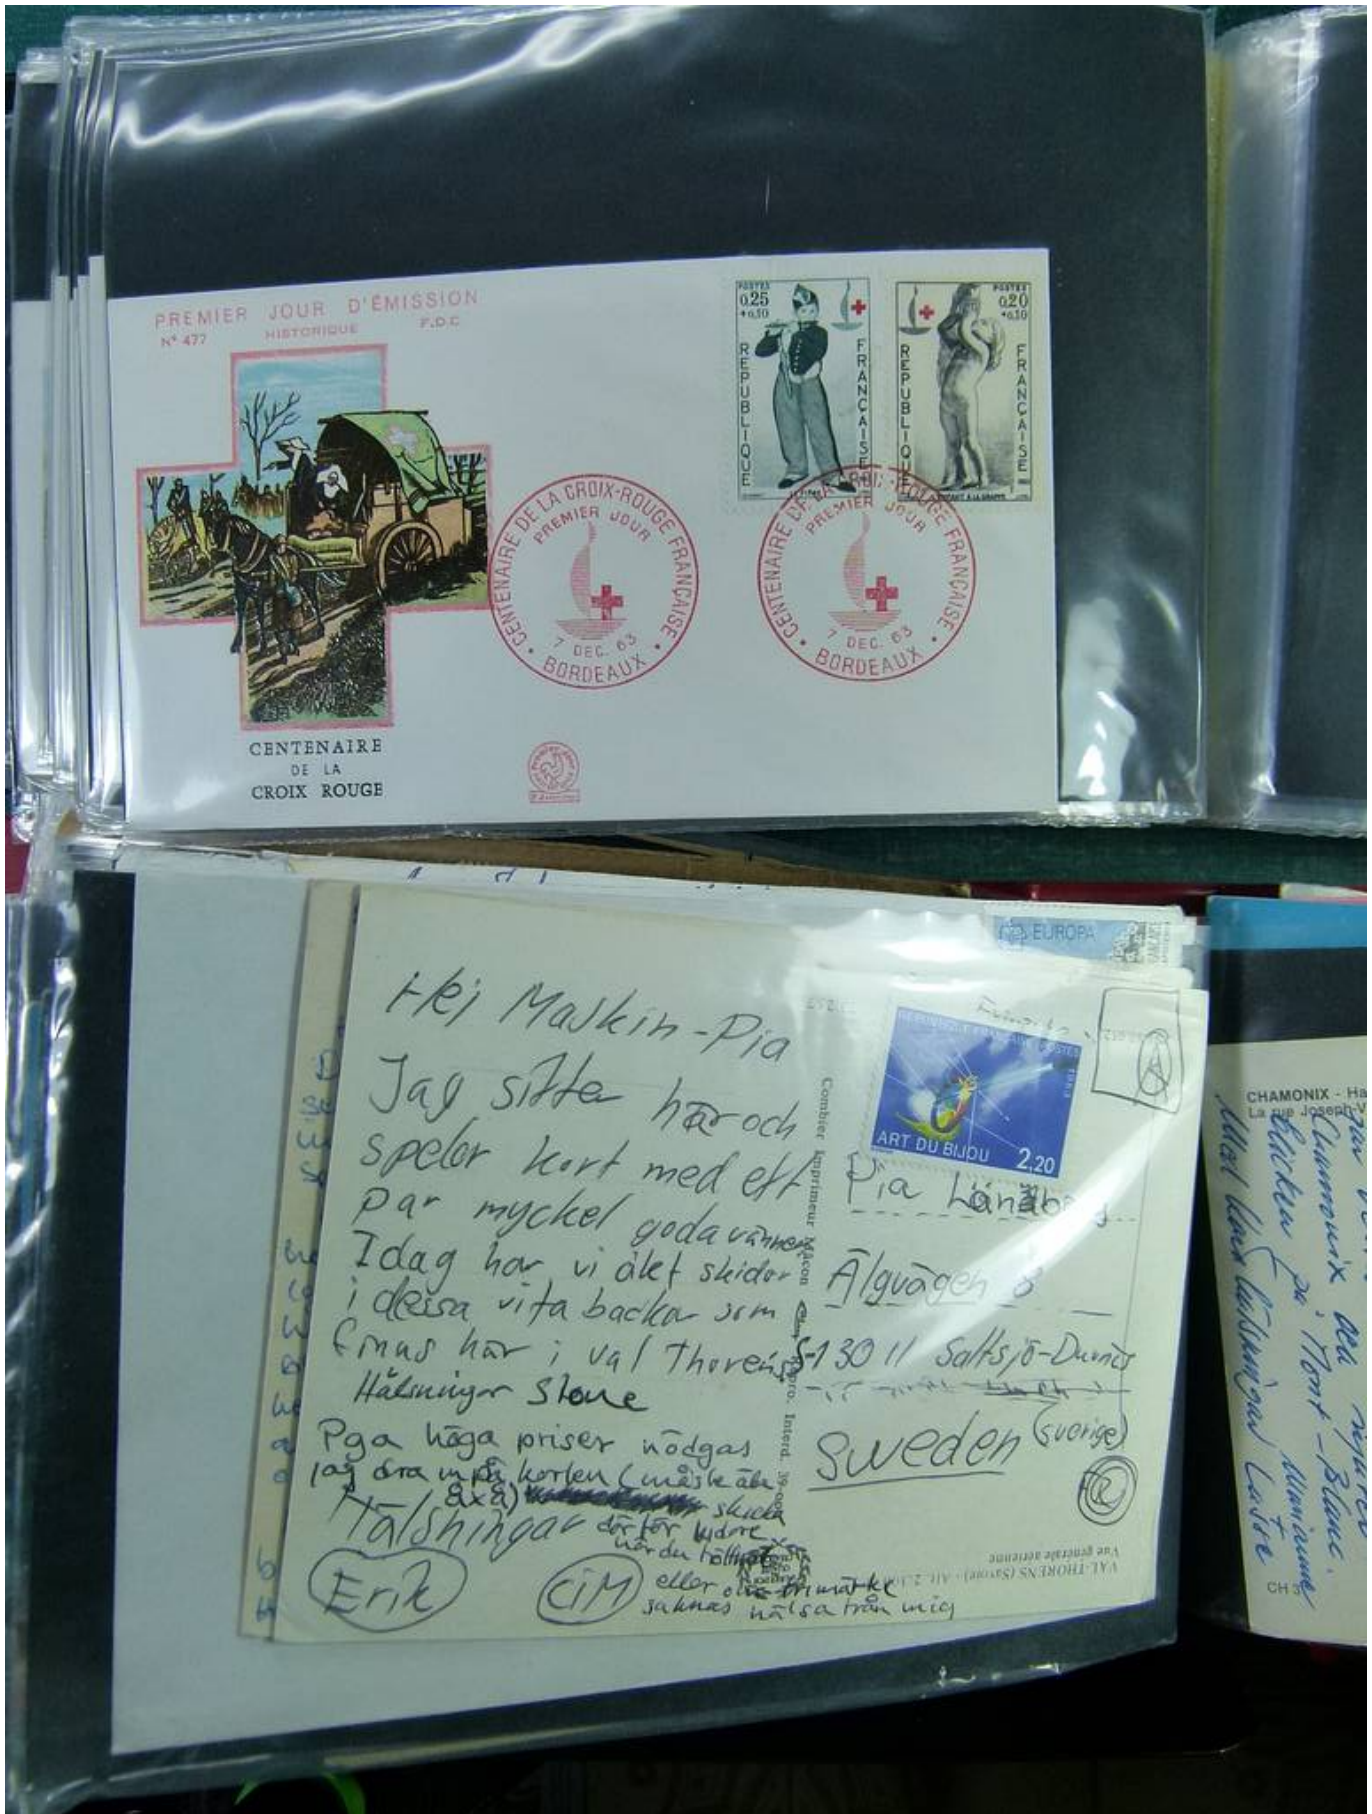 PREMIER JOUR D'ÉMISSION
N° 477 HISTORIQUE F.D.C
POSTES
0,25
+0,10
REPUBLIQUE
FRANÇAISE
POSTES
0,20
+0,10
REPUBLIQUE
FRANÇAISE
CENTENAIRE DE LA CROIX-ROUGE FRANÇAISE
PREMIER JOUR
7 DEC. 63
BORDEAUX
CENTENAIRE DE LA CROIX-ROUGE FRANÇAISE
PREMIER JOUR
7 DEC. 63
BORDEAUX
CENTENAIRE
DE LA
CROIX ROUGE
EUROPA
Hej Maskin-Pia
Jag sitter här och
spelar kort med ett
par mycket goda vänner
Idag har vi åket skidor
i dessa vita backar som
finns här i val Thorens
Hälsningar
Pga höga priser nödgas
jag dra in på korten (måste äta
skicka
Hälsningar därför vidare
när du
eller frimärke
saknas hälsa från mig
Erik
CiM
REPUBLIQUE FRANÇAISE POSTES
1989
ART DU BIJOU 2,20
Pia
Älgvägen 8
S-130 11 Saltsjö-Duvnäs
Sweden (sverige)
Combier Imprimeur Mâcon
Repro. Interd.
VAL-THORENS (Savoie) - Alt. 2.300
Vue générale aérienne
CHAMONIX - Ha
La rue Joseph-V
Chamonix
backen på Mont-Blanc.
Lasse
CH 3